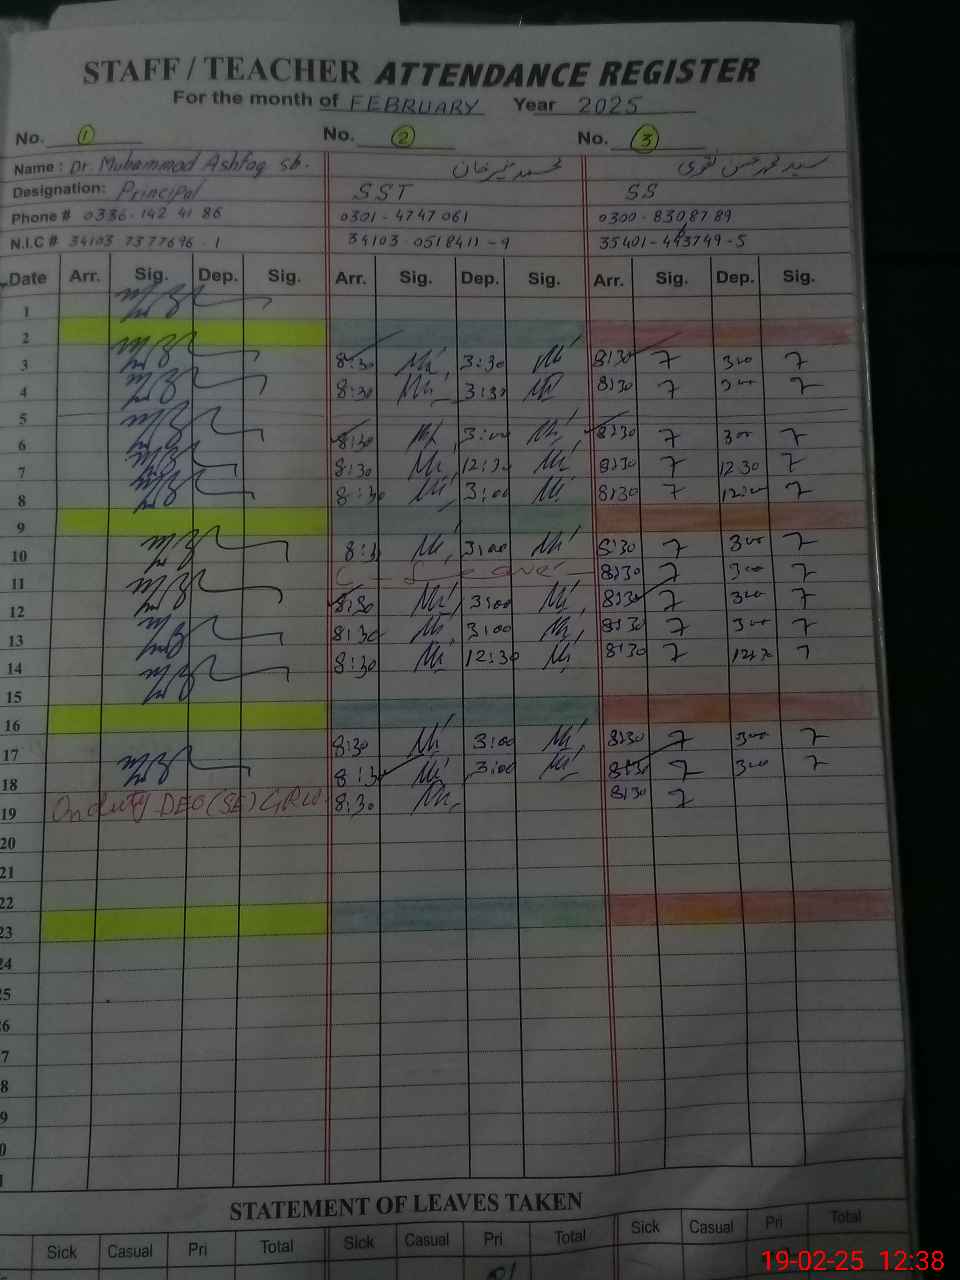 STAFF / TEACHER ATTENDANCE REGISTER
For the month of FEBRUARY Year 2025
No. 1 No. 2 No. 3
Name : Dr. Muhammad Ashfaq sb.
Designation: Principal SST SS
Phone # 0336-142 41 86 0301-4747061 0300-8308789
N.I.C # 34103 7377696-1 34103-0518411-9 35401-493749-5
Date Arr. Sig. Dep. Sig. Arr. Sig. Dep. Sig. Arr. Sig. Dep. Sig.
1
2
3 8:30 3:30 8:30 300
4 8:30 3:30 8:30 300
5
6 8:30 3:00 8:30 300
7 8:30 12:30 8:30 12 30
8 8:30 3:00 8:30
9
10 3:00 8:30 300
11 C-Leave 8:30 300
12 8:30 3:00 8:30 300
13 8:30 3:00 8:30 300
14 8:30 12:30 8:30 12:30
15
16
17 8:30 3:00 8:30 300
18 8:30 3:00 8:30 300
19 On duty DEO (SE) GRW 8:30 8:30
20
21
22
23
24
25
6
7
8
9
0
1
STATEMENT OF LEAVES TAKEN
Sick Casual Pri Total Sick Casual Pri Total Sick Casual Pri Total
01
19-02-25 12:38